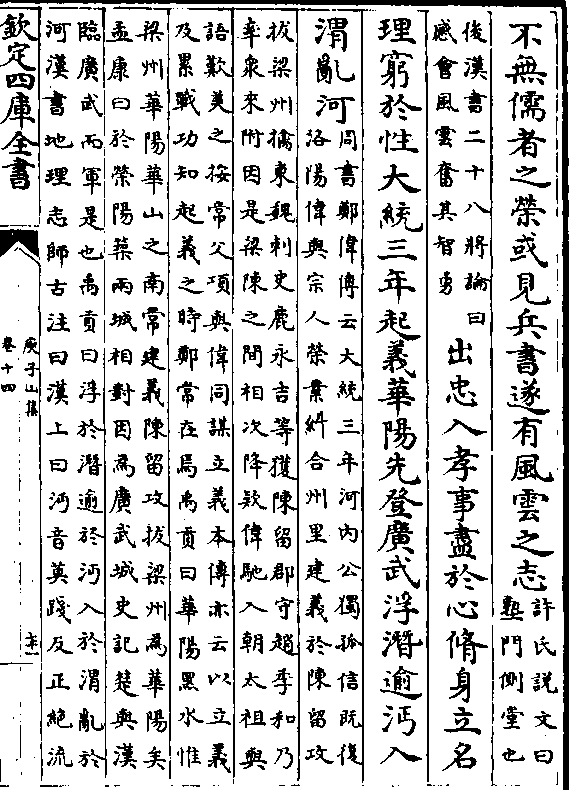 不無儒者之榮或見兵書遂有風雲之志
許氏説文曰
塾門側堂也
後漢書二十八將論曰
感會風雲奮其智勇
出忠入孝事盡於心脩身立名
理窮於性大統三年起義華陽先登廣武浮潛逾沔入
渭亂河
周書鄭偉傳云大統三年河內公獨孤信既復
洛陽偉與宗人榮業糾合州里建義於陳留攻
拔梁州擒東魏刺史鹿永吉等獲陳留郡守趙季和乃
率衆來附因是梁陳之間相次降欵偉馳入朝太祖與
語歎美之按常父項與偉同謀立義本傳亦云以立義
及累戰功知起義之時鄭常在焉禹貢曰華陽黑水惟
梁州華陽華山之南常建義陳留攻拔梁州為華陽矣
孟康曰於滎陽築兩城相對因為廣武城史記楚與漢
臨廣武而軍是也禹貢曰浮於潛逾於沔入於渭亂於
河漢書地理志師古注曰漢上曰沔音莫踐反正絶流
欽定四庫全書
庾子山集
卷十四